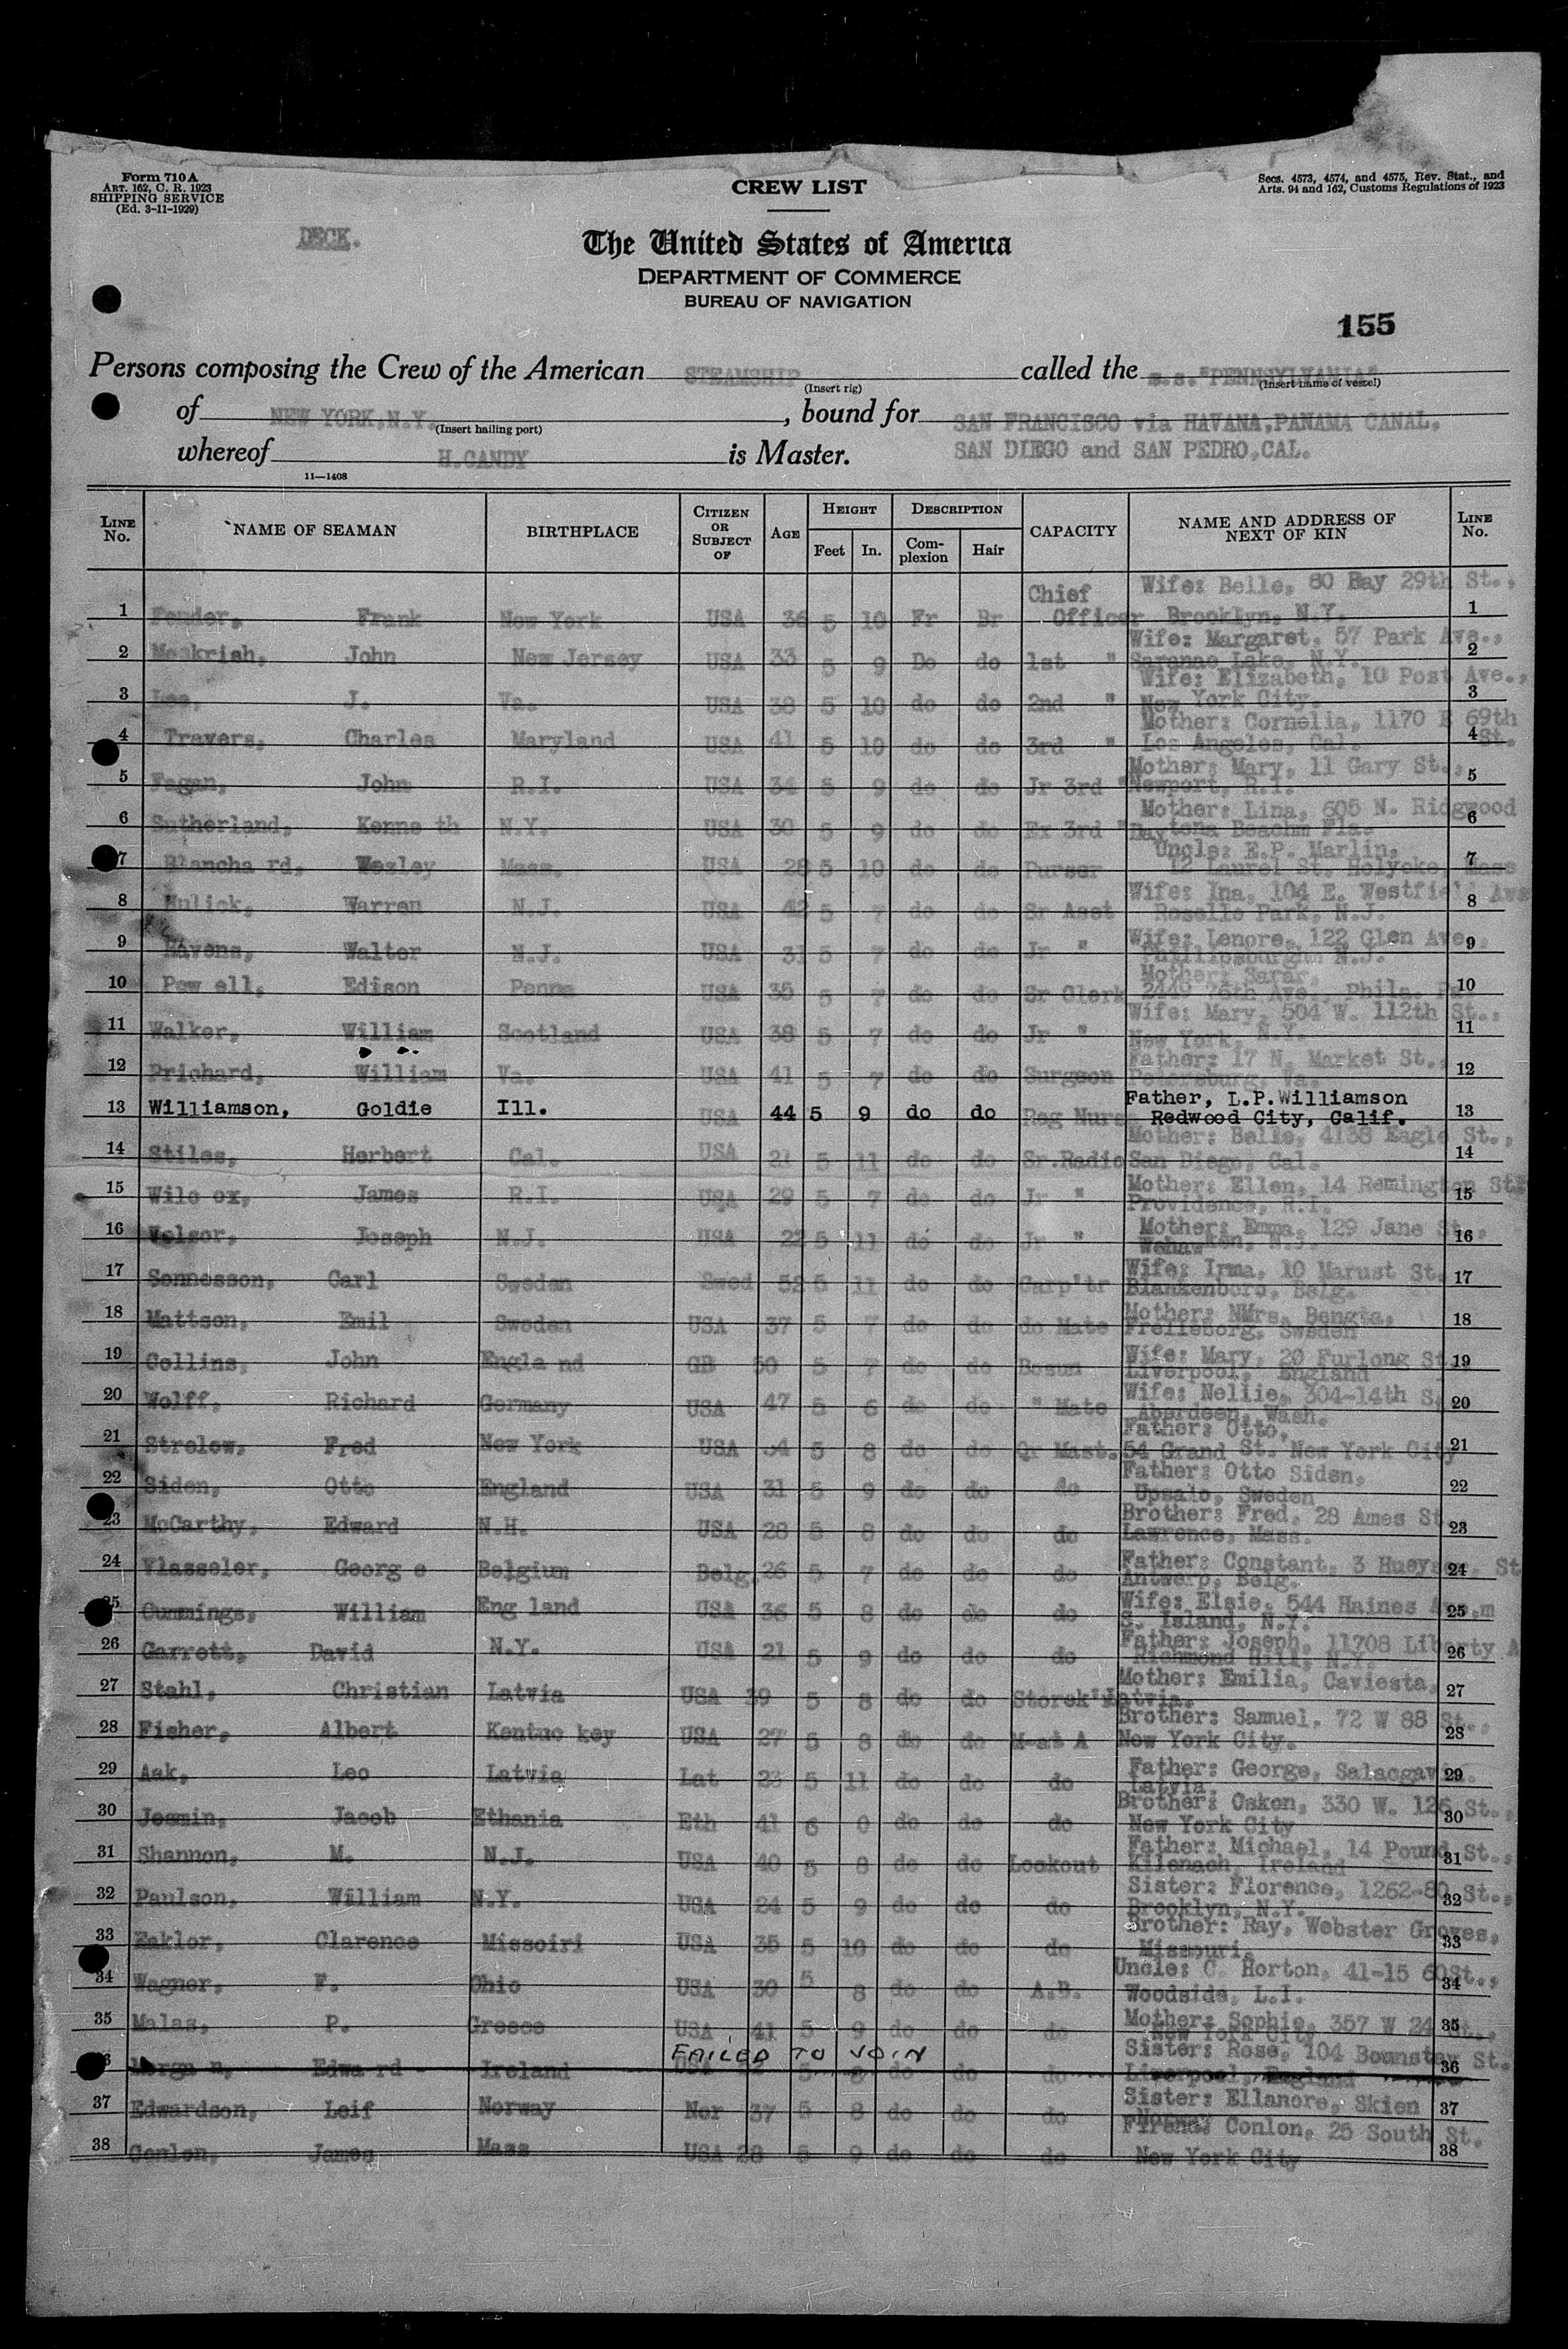 Form 710A
ART. 162, C. R. 1923
SHIPPING SERVICE
(Ed. 3-11-1929)
CREW LIST
Secs. 4573, 4574, and 4575, Rev. Stat., and
Arts. 94 and 162, Customs Regulations of 1923
DECK.
The United States of America
DEPARTMENT OF COMMERCE
BUREAU OF NAVIGATION
155
Persons composing the Crew of the American STEAMSHIP called the s.s."PENNSYLVANIA"
(Insert rig) (Insert name of vessel)
of NEW YORK,N.Y. , bound for SAN FRANCISCO via HAVANA,PANAMA CANAL.
(Insert hailing port)
whereof H.CANDY is Master. SAN DIEGO and SAN PEDRO,CAL.
11—1408
LINE No. NAME OF SEAMAN BIRTHPLACE CITIZEN OR SUBJECT OF AGE HEIGHT Feet In. DESCRIPTION Complexion Hair CAPACITY NAME AND ADDRESS OF NEXT OF KIN LINE No.
Chief Wife: Belle, 80 Bay 29th St.,
1 Fender, Frank New York USA 36 5 10 Fr Br Officer Brooklyn, N.Y. 1
Wife: Margaret, 57 Park Ave.,
2 John New Jersey USA 33 5 9 Do do 1st " Saranac Lake, N.Y. 2
Wife: Elizabeth, 10 Post Ave.,
3 Lee, J. Va. USA 38 5 10 do do 2nd " New York City. 3
Mother: Cornelia, 1170 E 69th
4 Travers, Charles Maryland USA 41 5 10 do do 3rd " Los Angeles, Cal. St. 4
Mother: Mary, 11 Gary St.,
5 Fagan, John R.I. USA 34 5 9 do do Jr 3rd " Newport, R.I. 5
Mother: Lina, 605 N. Ridgwood
6 Sutherland, Kenne th N.Y. USA 30 5 9 do do Ex 3rd " Daytona Beachm Fla. 6
Uncle: E.P. Marlin,
7 Blancha rd, Wesley Mass. USA 28 5 10 do do Purser 12 Laurel St. Holyoke, Mass 7
Wife: Ina, 104 E. Westfield Ave
8 Warren N.J. USA 42 5 7 do do Sr Asst Roselle Park, N.J. 8
Wife: Lenore, 122 Glen Ave.,
9 Havens, Walter N.J. USA 31 5 7 do do Jr " Phillipsburgm N.J. 9
Mother: Sarar,
10 Pow ell, Edison Penna USA 35 5 7 do do Sr Clerk 2449 26th Ave., Phila. Pa. 10
Wife: Mary, 504 W. 112th St.,
11 Walker, William Scotland USA 38 5 7 do do Jr " New York, N.Y. 11
Father: 17 N. Market St.,
12 Prichard, William Va. USA 41 5 7 do do Surgeon Petersburg, Va. 12
Father, L.P.Williamson
13 Williamson, Goldie Ill. USA 44 5 9 do do Reg Nurse Redwood City, Calif. 13
Mother: Belle, 4138 Eagle St.,
14 Stiles, Herbert Cal. USA 21 5 11 do do Sr.Radio San Diego, Cal. 14
Mother: Ellen, 14 Remington St.
15 Wilc ox, James R.I. USA 29 5 7 do do Jr " Providence, R.I. 15
Mother: Emma, 129 Jane St.,
16 Velsor, Joseph N.J. USA 22 5 11 do do Jr " Wehawken, N.J. 16
Wife: Irma, 10 Marust St.
17 Sonnesson, Carl Sweden Swed 52 5 11 do do Carp'tr Blankenboro, Belg. 17
Mother: NMrs. Bengta,
18 Mattson, Emil Sweden USA 37 5 7 do do do Mate Frelleborg, Sweden 18
Wife: Mary, 20 Furlong St.
19 Collins, John Engla nd GB 50 5 7 do do Bosun Liverpool, England 19
Wife: Nellie, 304-14th S.
20 Wolff, Richard Germany USA 47 5 6 do do " Mate Aberdeen, Wash. 20
Father: Otto,
21 Strelow, Fred New York USA 34 5 8 do do Qr Mast. 54 Grand St. New York City 21
Father: Otto Siden,
22 Siden, Otto England USA 31 5 9 do do do Upsalo, Sweden 22
Brother: Fred, 28 Ames St.
23 McCarthy, Edward N.H. USA 28 5 8 do do do Lawrence, Mass. 23
Father: Constant, 3 St
24 Vlasseler, Georg e Belgium Belg. 26 5 7 do do do Antwerp, Belg. 24
Wife: Elsie, 544 Haines Ave.m
25 Cummings, William Eng land USA 36 5 8 do do do S. Island, N.Y. 25
Father: Joseph, 11708 Liberty A
26 Garrett, David N.Y. USA 21 5 9 do do do Richmond Hill, N.Y. 26
Mother: Emilia, Caviesta,
27 Stahl, Christian Latvia USA 39 5 8 do do Storek'p Latvia. 27
Brother: Samuel, 72 W 88 St.,
28 Fisher, Albert Kentuc key USA 27 5 8 do do M-at A New York City. 28
Father: George,
29 Aak, Leo Latvia Lat 23 5 11 do do do Latvia. 29
Brother: Osken, 330 W. 126 St.,
30 Jesmin, Jacob Ethania Eth 41 6 0 do do do New York City 30
Father: Michael, 14 Pound St.,
31 Shannon, M. N.J. USA 40 5 8 do do Lookout Kilenach, Ireland 31
Sister: Florence, 1262-80 St.,
32 Paulson, William N.Y. USA 24 5 9 do do do Brooklyn, N.Y. 32
Brother: Ray, Webster Groves,
33 Eaklor, Clarence Missoiri USA 35 5 10 do do do Missouri. 33
Uncle: C. Horton, 41-15 60St.,
34 Wagner, F. Ohio USA 30 5 8 do do A.B. Woodside, L.I. 34
Mother: Sophie, 357 W 24 St.,
35 Malas, P. Greece USA 41 5 9 do do do New York City 35
FAILED TO JOIN
Sister: Rose, 104 Bownstay St.
36 Morga n, Edwa rd Ireland USA 5 8 do do do Liverpool, England 36
Sister: Ellanore, Skien
37 Edwardson, Leif Norway Nor 37 5 8 do do do Norway 37
Friend: Conlon, 25 South St.
38 Conlon, James Mass USA 28 5 9 do do do New York City 38